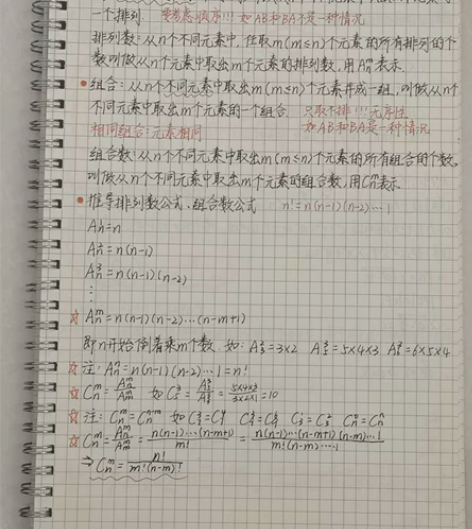 一个排列. 要考虑顺序!!! 如AB和BA不是一种情况
排列数:从n个不同元素中,任取m(m≤n)个元素的所有排列的个
数叫做从n个不同元素中取出m个元素的排列数,用Aₙᵐ表示.
•组合:从n个不同元素中取出m(m≤n)个元素并成一组,叫做从n个
不同元素中取出m个元素的一个组合. 只取不排!!!无序性
相同组合:元素相同 如AB和BA是一种情况
组合数:从n个不同元素中取出m(m≤n)个元素的所有组合的个数,
叫做从n个不同元素中取出m个元素的组合数,用Cₙᵐ表示.
•推导排列数公式、组合数公式 n!=n(n-1)(n-2)…1
Aₙ¹=n
Aₙ²=n(n-1)
Aₙ³=n(n-1)(n-2)
⋮
☆ Aₙᵐ=n(n-1)(n-2)…(n-m+1)
即n开始倒着乘m个数. 如: A₃²=3×2 A₅³=5×4×3 A₆³=6×5×4
☆注: Aₙⁿ=n(n-1)(n-2)…1=n!
☆ Cₙᵐ=Aₙᵐ/Aₘᵐ 如C₅³=A₅³/A₃³=5×4×3/3×2×1=10
☆注: Cₙᵐ=Cₙⁿ⁻ᵐ 如 Cₙ⁰=Cₙⁿ
☆ Cₙᵐ=Aₙᵐ/Aₘᵐ=n(n-1)…(n-m+1)/m!=n(n-1)…(n-m+1)(n-m)…1/m!(n-m)…1
⇒Cₙᵐ=n!/m!(n-m)!